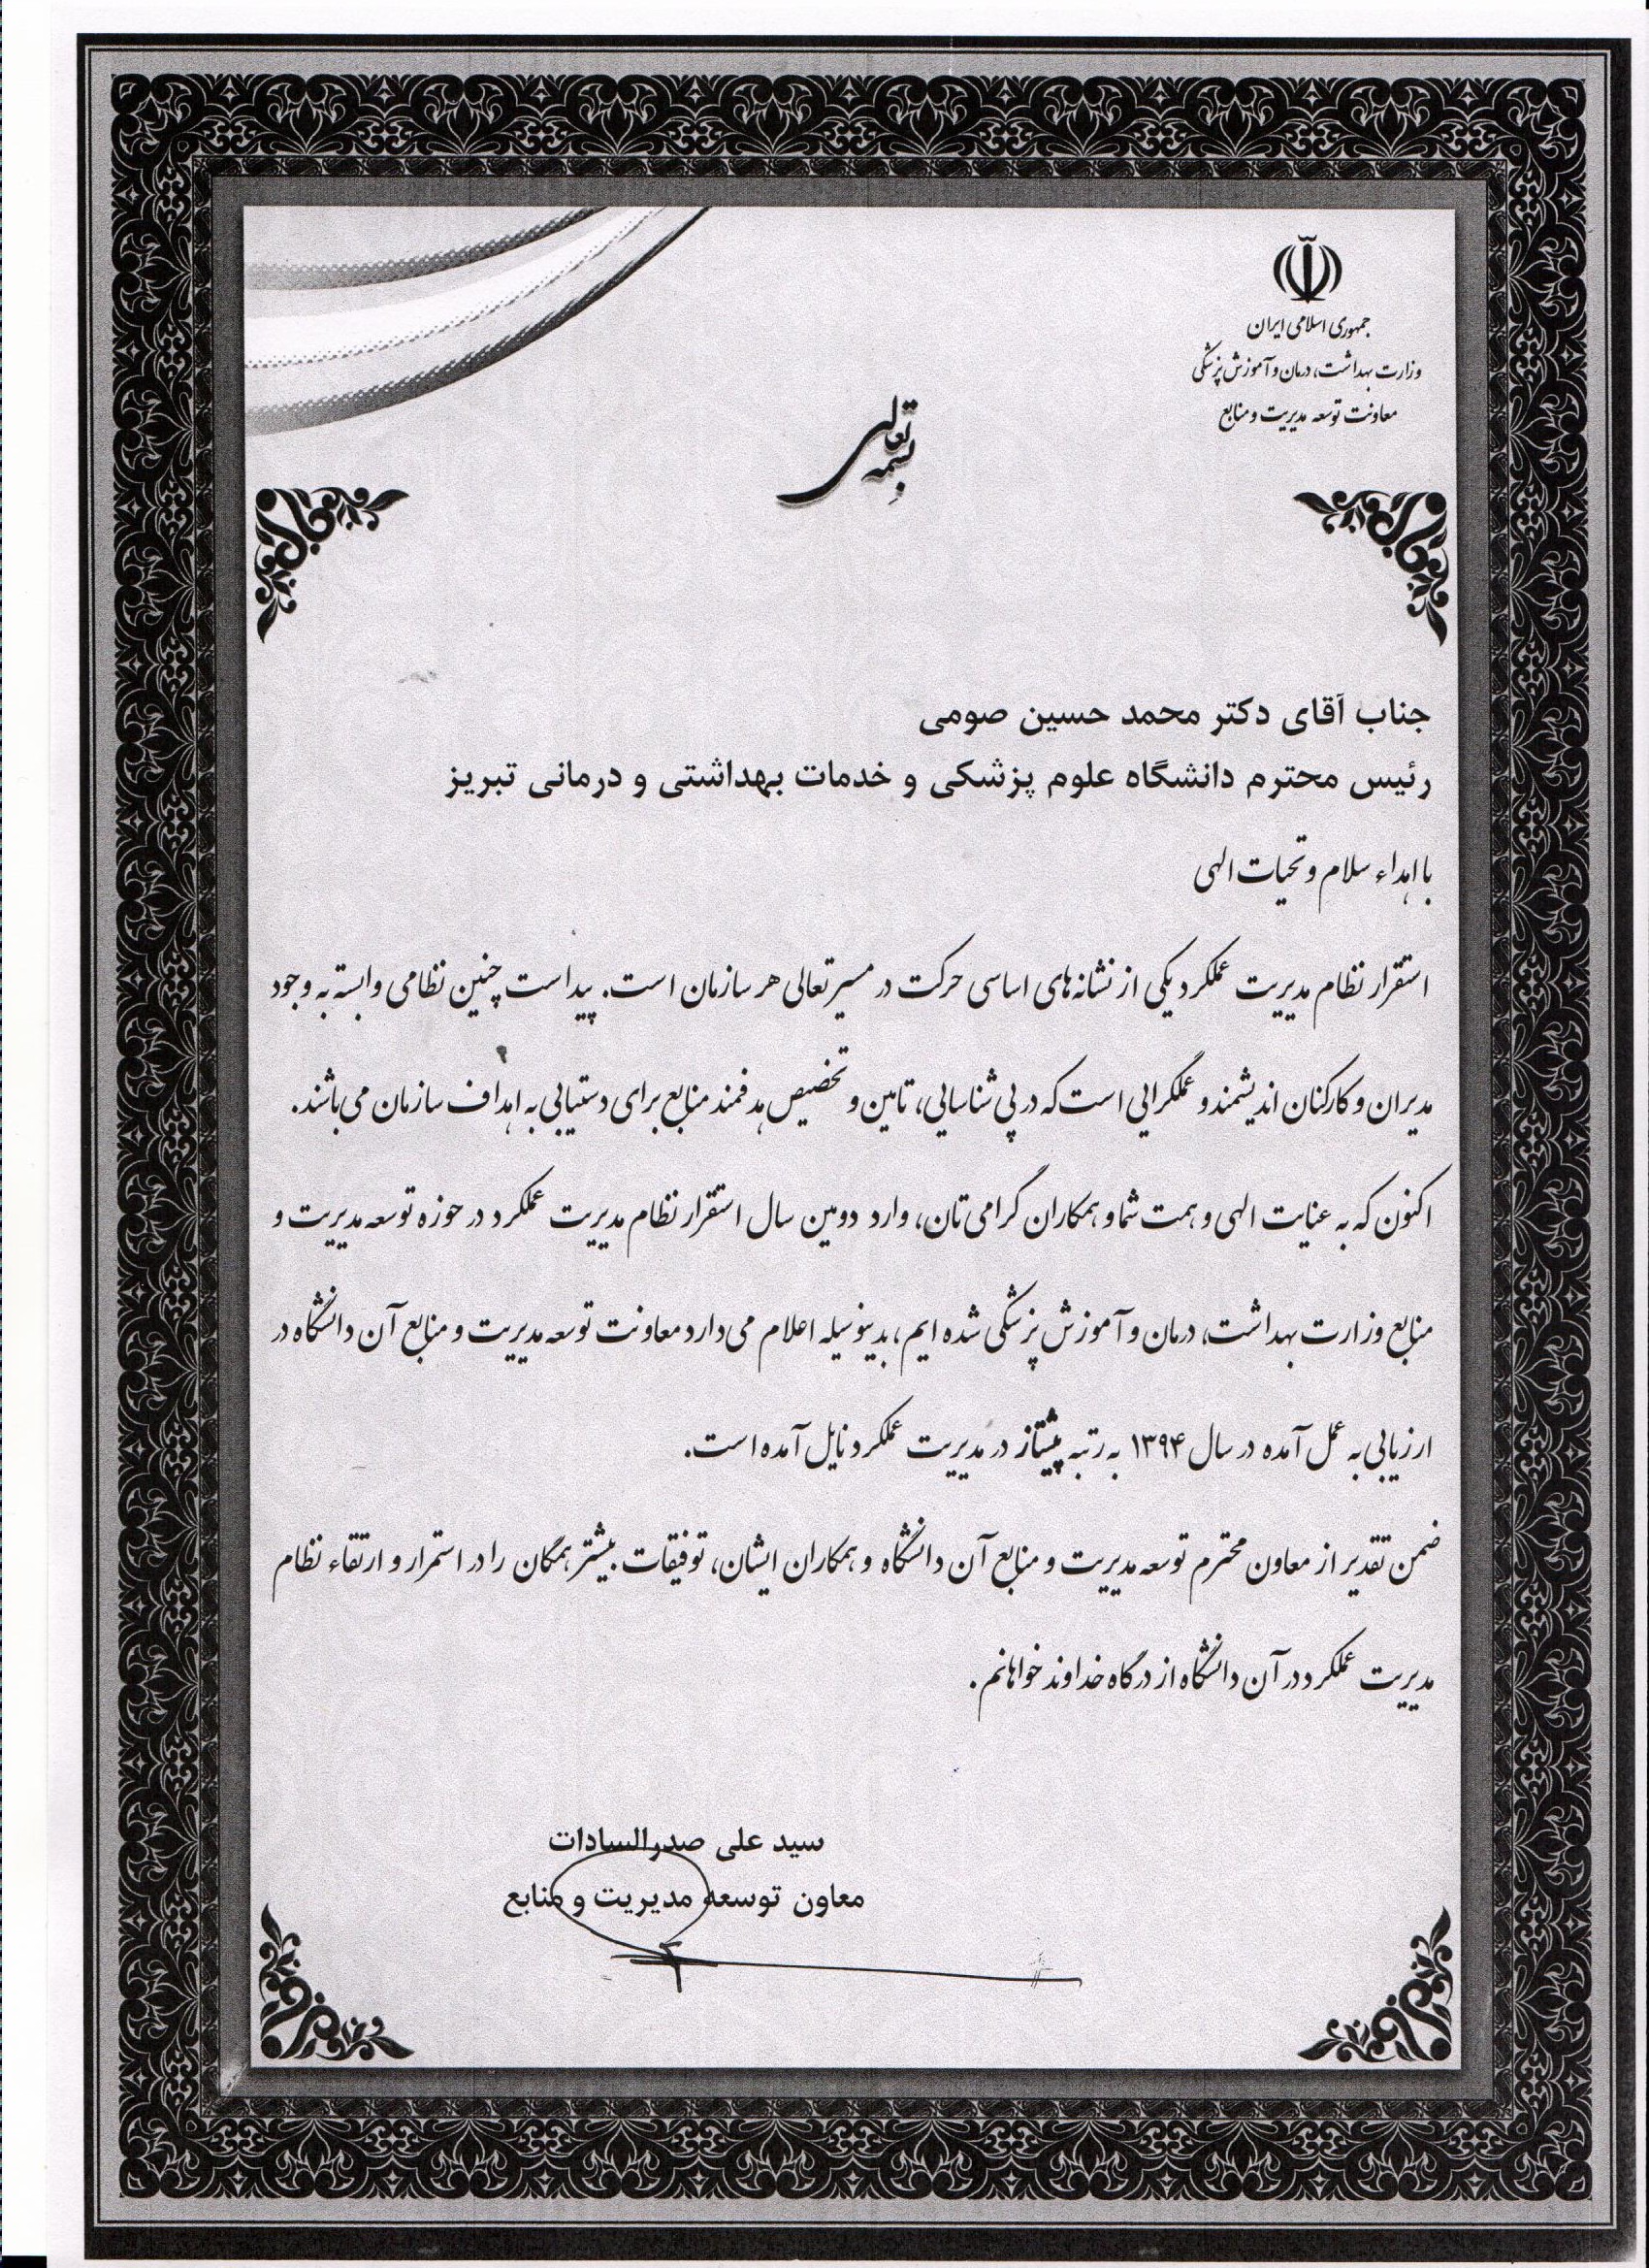 جمهوری اسلامی ایران
وزارت بهداشت، درمان و آموزش پزشکی
معاونت توسعه مدیریت و منابع
بسمه تعالی
جناب آقای دکتر محمد حسین صومی
رئیس محترم دانشگاه علوم پزشکی و خدمات بهداشتی و درمانی تبریز
با اهداء سلام و تحیات الهی
استقرار نظام مدیریت عملکرد یکی از نشانه‌های اساسی حرکت در مسیر تعالی هر سازمان است. پیداست چنین نظامی وابسته به وجود
مدیران و کارکنان اندیشمند و عملگرایی است که در پی شناسایی، تامین و تخصیص هدفمند منابع برای دستیابی به اهداف سازمان می‌باشند.
اکنون که به عنایت الهی و همت شما و همکاران گرامی تان، وارد دومین سال استقرار نظام مدیریت عملکرد در حوزه توسعه مدیریت و
منابع وزارت بهداشت، درمان و آموزش پزشکی شده ایم، بدینوسیله اعلام می‌دارد معاونت توسعه مدیریت و منابع آن دانشگاه در
ارزیابی به عمل آمده در سال ۱۳۹۴ به رتبه پیشتاز در مدیریت عملکرد نایل آمده است.
ضمن تقدیر از معاون محترم توسعه مدیریت و منابع آن دانشگاه و همکاران ایشان، توفیقات بیشتر همگان را در استمرار و ارتقاء نظام
مدیریت عملکرد در آن دانشگاه از درگاه خداوند خواهانم.
سید علی صدرالسادات
معاون توسعه مدیریت و منابع